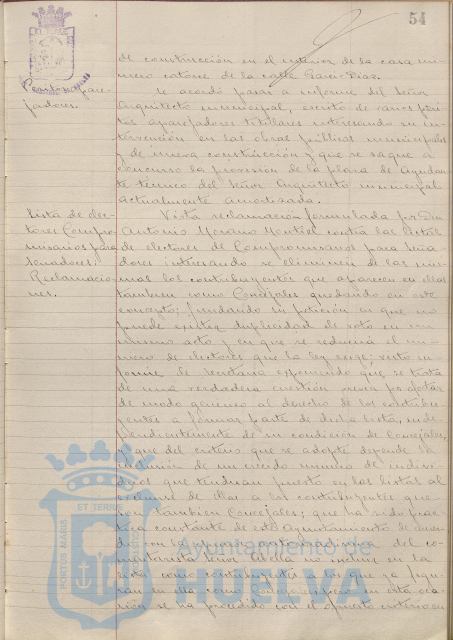 54
de construcción en el interior de la casa nú-
mero catorce de la calle Garci-Diaz.
Peritos apare-
jadores.
Se acordó pasar a informe del Señor
Arquitecto municipal, escrito de varios peri-
tos aparejadores titulares interesando su in-
tervención en las obras públicas municipales
y de nueva construcción y que se saque a
concurso la provisión de la plaza de Ayudan-
te técnico del Señor Arquitecto municipal
actualmente amortizada.
Lista de elec-
tores Compro-
misarios para
Senadores:
Reclamacio-
nes.
Vista reclamación formulada por Don
Antonio Morano Montiel contra las listas
de electores de Compromisarios para Sena-
dores interesando se eliminen de las mis-
mas los contribuyentes que aparecen en ellas
tambien como Concejales quedando en este
concepto; fundando su petición en que no
puede existir duplicidad de voto en un
mismo acto y en que se reduciría el nú-
mero de electores que la ley exige; visto in-
forme de Secretaría exponiendo que se trata
de una verdadera cuestión nueva por afectar
de modo generico al derecho de los contribu-
yentes a formar parte de dicha lista, inde-
pendientemente de su condición de Concejales,
y que del criterio que se adopte depende la
inclusión de un crecido numero de indivi-
duos que tendrían puesto en las listas al
excluirse de ellas a los contribuyentes que
son tambien Concejales; que ha sido prác-
tica constante de este Ayuntamiento de acuer-
do con la del co-
mentarista Señor Abella no incluir en la
lista como contribuyentes a los que ya figu-
ran en ella como Concejales pero en esta oca-
sión se ha procedido con el opuesto criterio en
ET TERRIS
PORTUS MARIS
Ayuntamiento de
HUELVA